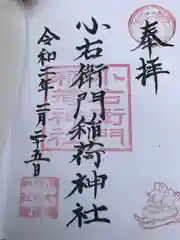 奉拝
小右衛門稲荷神社
小右衛門
稲荷神社
令和二年二月二十五日